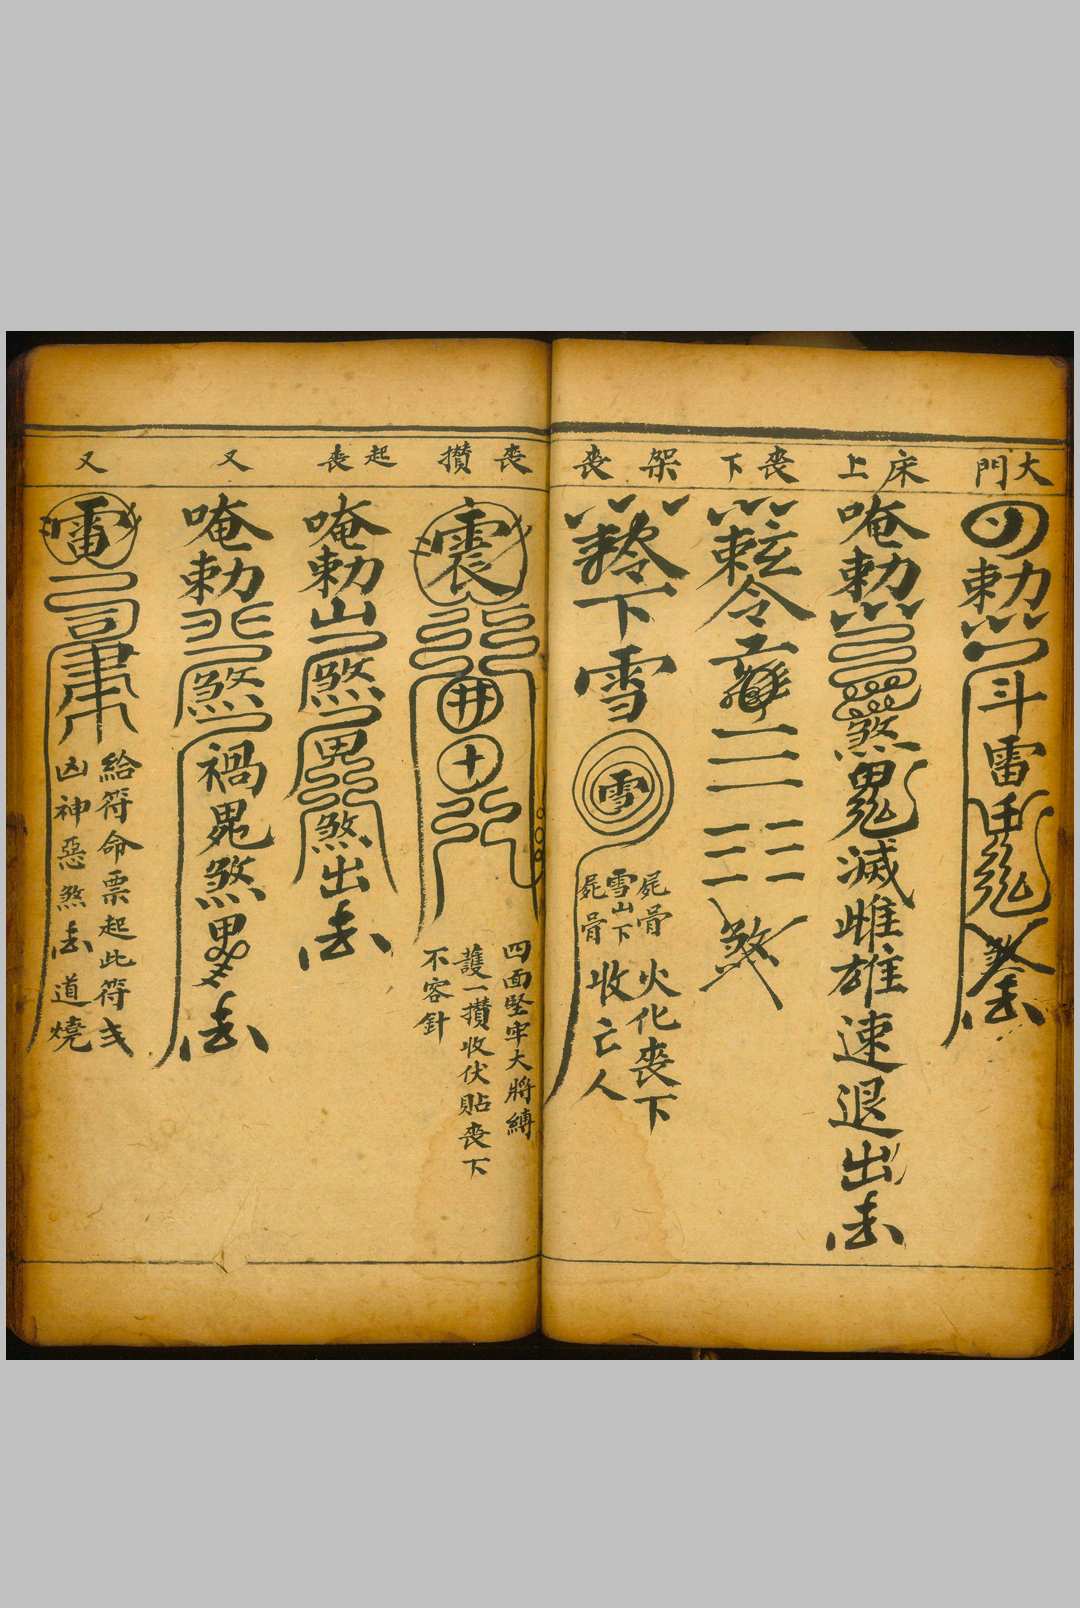 大門
勅
斗
雷
床上
唵
勅
煞
鬼
滅
雌
雄
速
退
出
去
喪下
令
煞
架喪
下
雪
雪
屍骨
雪山下
屍骨
火化喪下
收亡人
喪攢
震
井
十
四面堅牢大將縛
護一攢收伏貼喪下
不容針
起喪
唵
勅
山
煞
煞
出
去
又
唵
勅
煞
禍
煞
去
又
雷
給符命票起此符
凶神惡煞去道燒